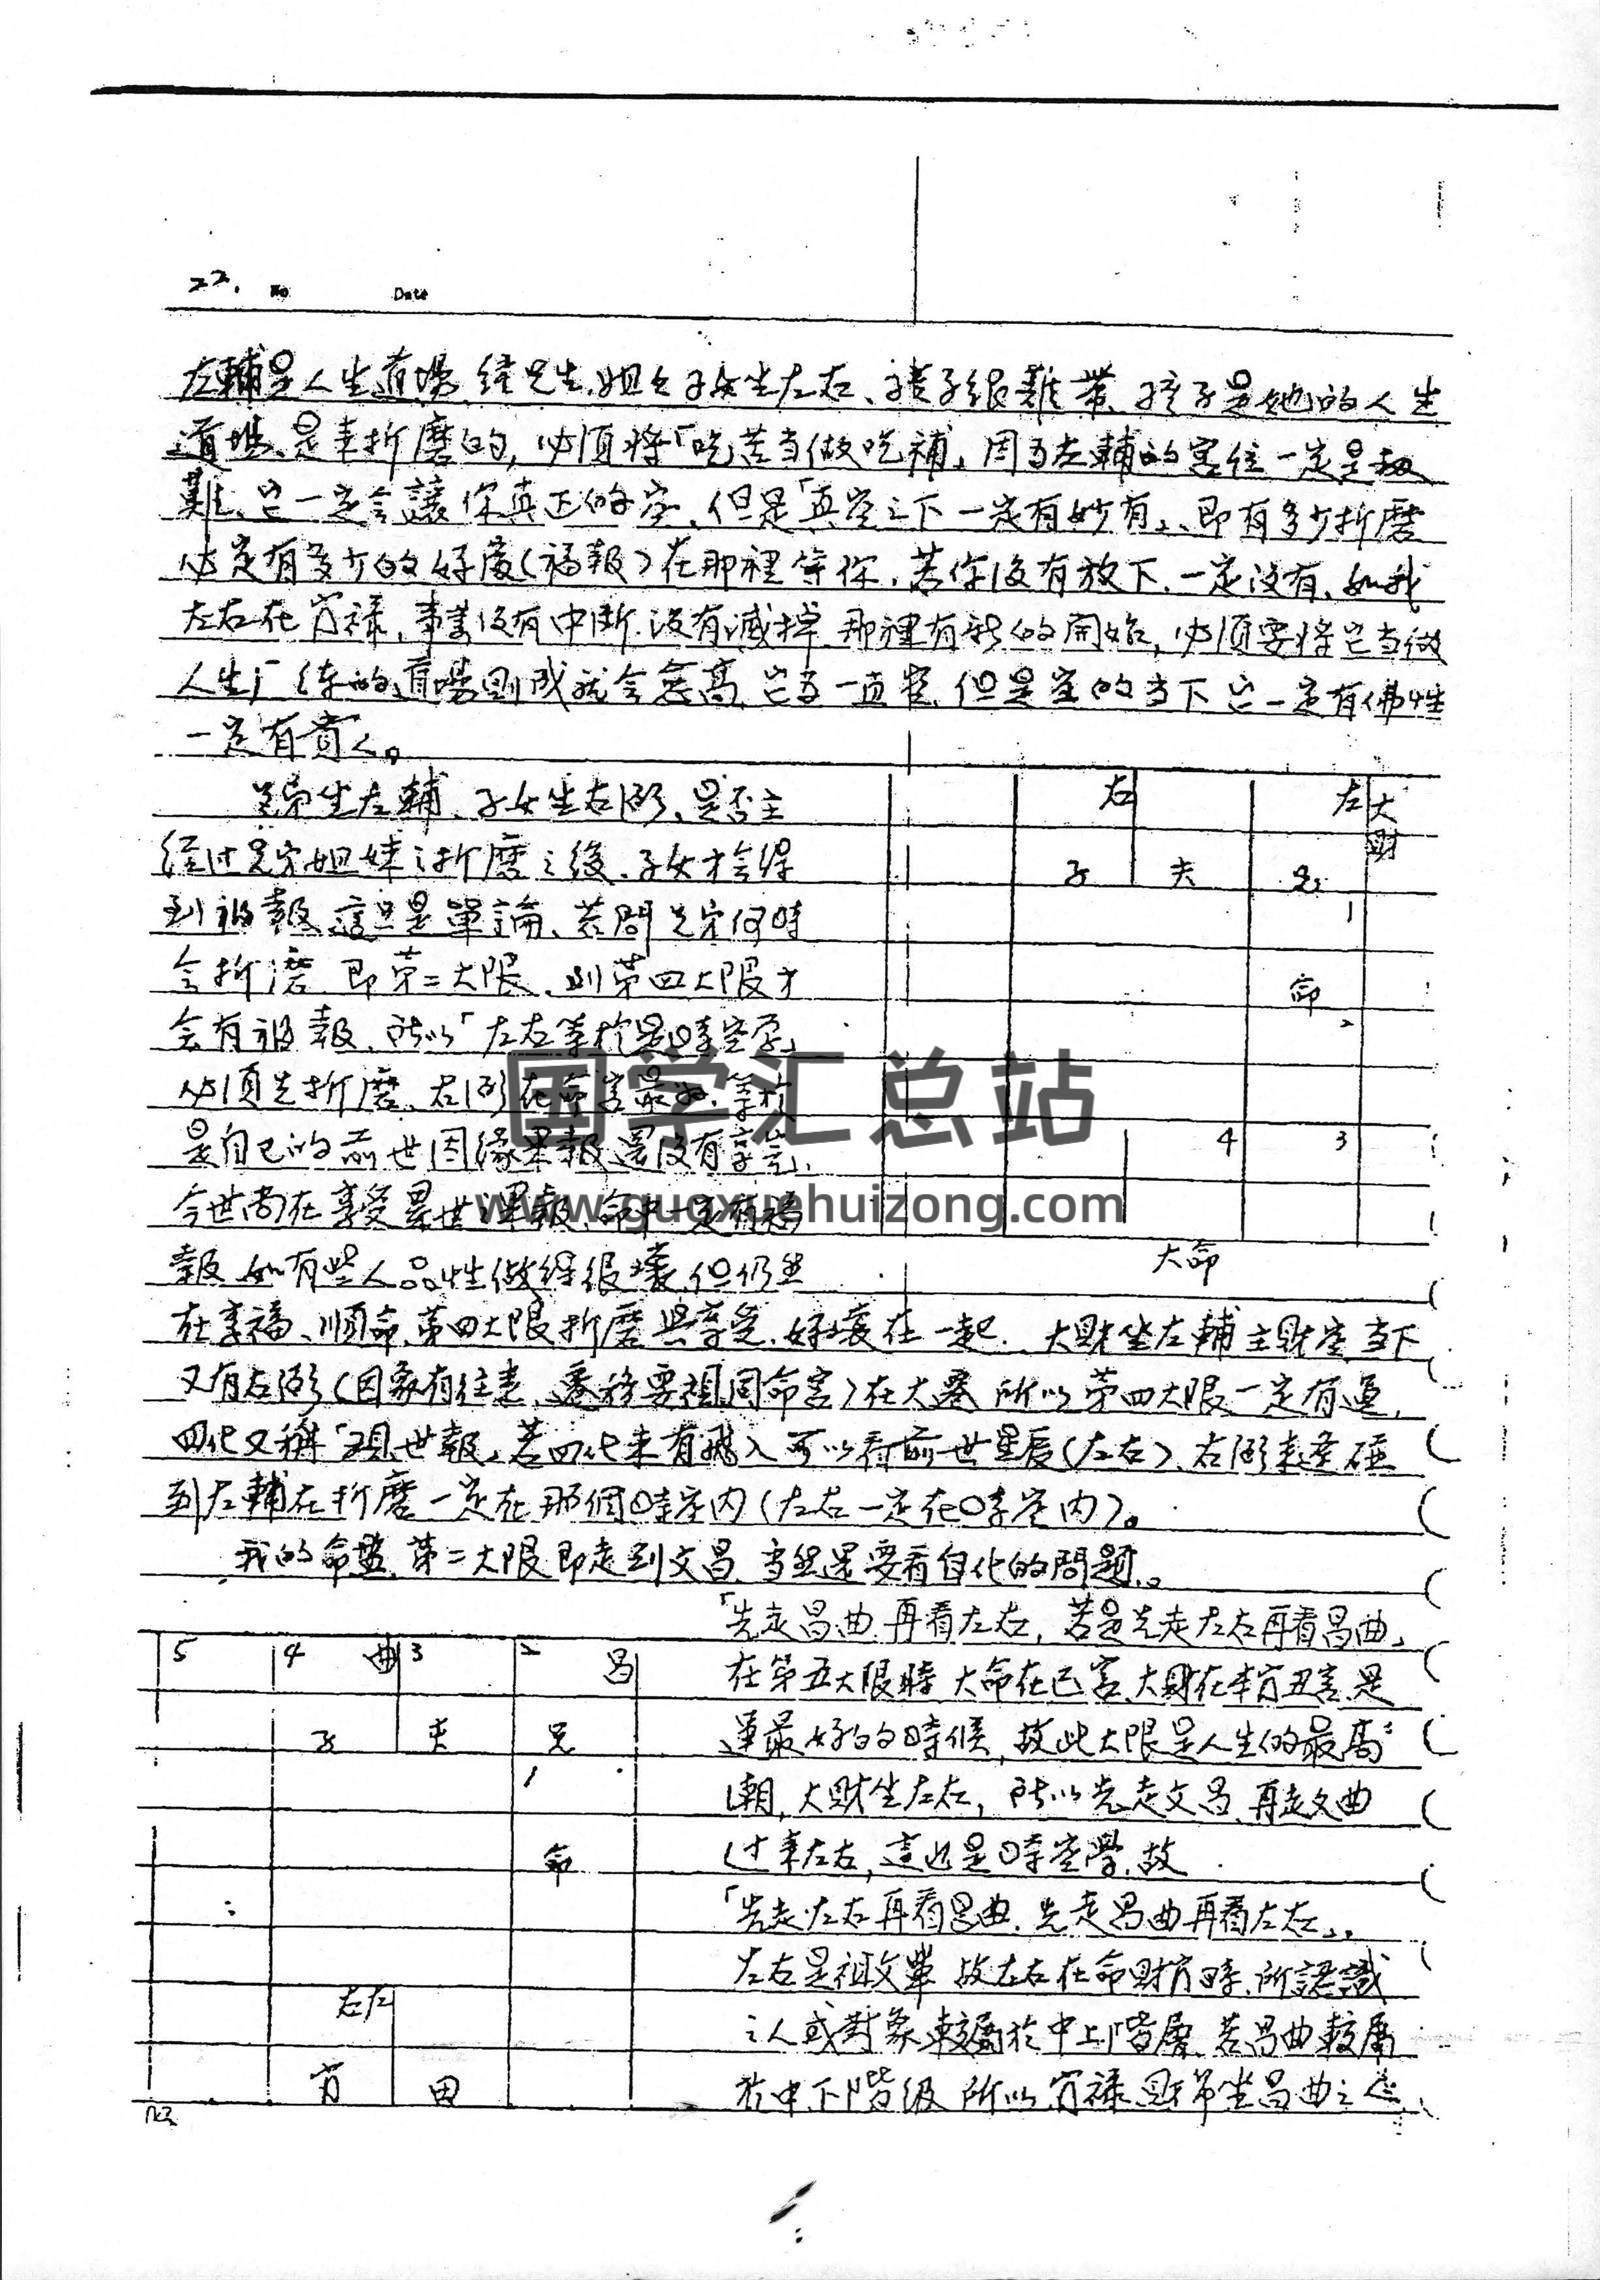 22. No Date
左輔是人生道場 子女坐左右、孩子很難帶、孩子是她的人生
道場、是來折磨的,必須將「吃苦当做吃補」因為左輔的宮位一定是劫
難、它一定会讓你真正的空、但是「真空之下一定有妙有」、即有多少折磨
必定有多少的好處(福報)在那裡等你、若你沒有放下、一定沒有、如我
左右在官祿、事業沒有中断、沒有減掉、那裡有新的開始,必須要將它当做
人生 練的道場則成就会愈高、但是空的当下它一定有佛性
一定有貴人。
兄弟坐左輔、子女坐右弼、是否主
經过兄弟姐妹之折磨之後、子女才会得
到福報、這只是單論、若問兄弟何時
会折磨、即第二大限、則第四大限才
会有福報、所以「左右等於是時空学」
必須先折磨、右弼在命宮最好、等於
是自己的前世因緣果報還沒有享完、
今世尚在享受累世 報、命中一定有福
報、如有些人品性做得很壞、但仍然
在享福、順命、第四大限折磨與享受、好壞在一起、大財坐左輔主財空、当下
又有右弼(因象有往來、遷移要視同命宮)在大遷、所以第四大限一定有運、
四化又稱「現世報」、若四化未有飛入可以看前世星辰(左右)、右弼来逢
到左輔在折磨一定在那個時空内(左右一定在時空内)。
我的命盤、第二大限即走到文昌、当然還要看自化的問題。
「先走昌曲再看左右,若是先走左右再看昌曲」
在第五大限時、大命在巳宮、大財在本官丑宮、是
運最好的時候,故此大限是人生的最高
潮,大財坐左右,所以先走文昌、再走文曲
过来左右,這也是時空學、故
「先走左右再看昌曲、先走昌曲再看左右」,
左右是祖父輩、故左右在命財官時、所認識
之人或對象較屬於中上階層、若昌曲較屬
於中下階級、所以官祿、財帛坐昌曲之人
右 左 大財
子 夫 兄
1
命
2
4 3
大命
5 4 曲 3 2 昌
子 夫 兄
1
命
右左
官 田
国学汇总站
www.guoxuehuizong.com